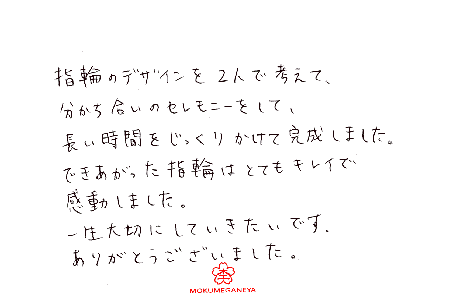 指輪のデザインを2人で考えて、
分かち合いのセレモニーをして、
長い時間をじっくりかけて完成しました。
できあがった指輪はとてもキレイで
感動しました。
一生大切にしていきたいです.
ありがとうございました。
木
MOKUMEGANEYA